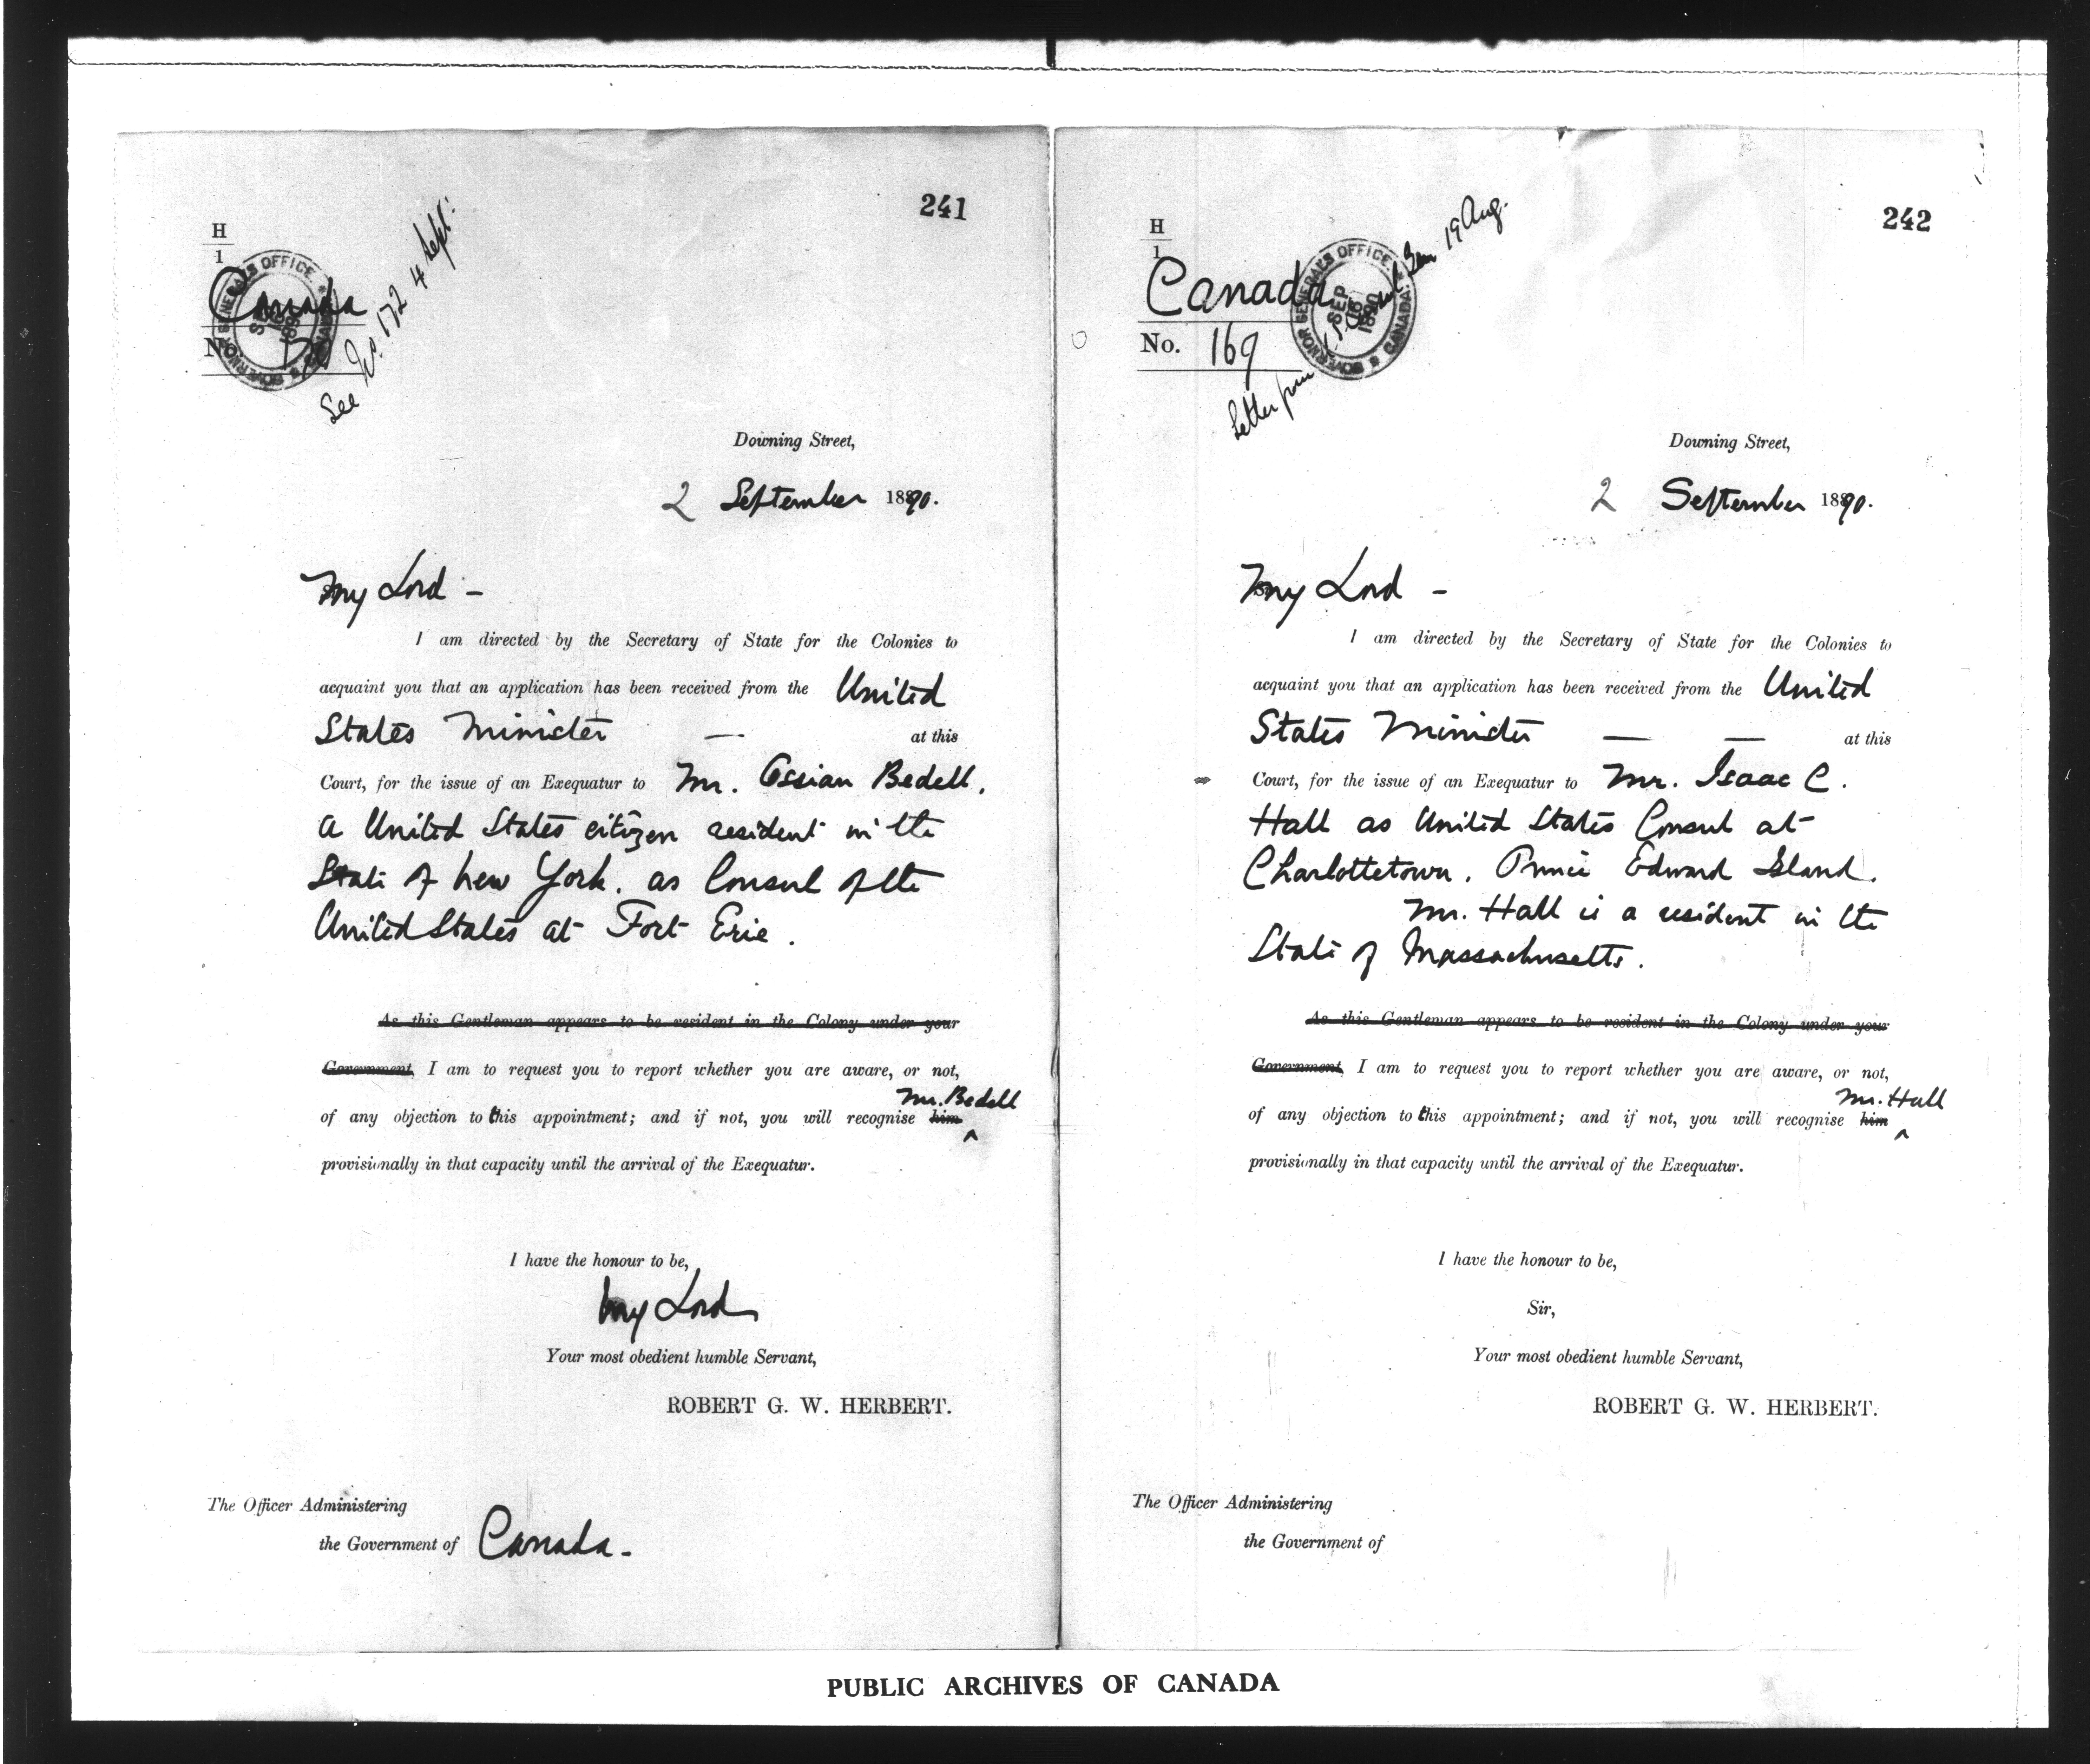 241
H
1
Canada
No.
See No. 172 4 Sept:
GOVERNOR GENERAL'S OFFICE. CANADA.
Downing Street,
2 September 1890.
My Lord -
I am directed by the Secretary of State for the Colonies to
acquaint you that an application has been received from the United
States Minister — at this
Court, for the issue of an Exequatur to Mr. Ossian Bedell,
a United States citizen resident in the
State of New York, as Consul of the
United States at Fort Erie.
As this Gentleman appears to be resident in the Colony under your
Government, I am to request you to report whether you are aware, or not,
Mr. Bedell
of any objection to this appointment; and if not, you will recognise him
provisionally in that capacity until the arrival of the Exequatur.
I have the honour to be,
My Lord
Your most obedient humble Servant,
ROBERT G. W. HERBERT.
The Officer Administering
the Government of Canada.
242
H
1
Canada
No. 169
Letter from 19 Aug.
GOVERNOR GENERAL'S OFFICE. CANADA.
SEP
1890
Downing Street,
2 September 1890.
My Lord -
I am directed by the Secretary of State for the Colonies to
acquaint you that an application has been received from the United
States Minister — — at this
Court, for the issue of an Exequatur to Mr. Isaac C.
Hall as United States Consul at
Charlottetown, Prince Edward Island.
Mr. Hall is a resident in the
State of Massachusetts.
As this Gentleman appears to be resident in the Colony under your
Government, I am to request you to report whether you are aware, or not,
Mr. Hall
of any objection to this appointment; and if not, you will recognise him
provisionally in that capacity until the arrival of the Exequatur.
I have the honour to be,
Sir,
Your most obedient humble Servant,
ROBERT G. W. HERBERT.
The Officer Administering
the Government of
PUBLIC ARCHIVES OF CANADA